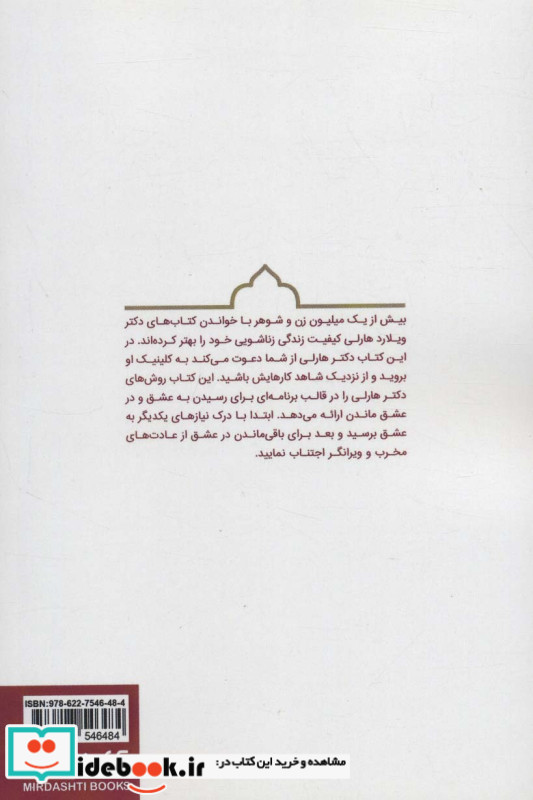 بیش از یک میلیون زن و شوهر با خواندن کتاب‌های دکتر
ویلارد هارلی کیفیت زندگی زناشویی خود را بهتر کرده‌اند. در
این کتاب دکتر هارلی از شما دعوت می‌کند به کلینیک او
بروید و از نزدیک شاهد کارهایش باشید. این کتاب روش‌های
دکتر هارلی را در قالب برنامه‌ای برای رسیدن به عشق و در
عشق ماندن ارائه می‌دهد. ابتدا با درک نیازهای یکدیگر به
عشق برسید و بعد برای باقی‌ماندن در عشق از عادت‌های
مخرب و ویرانگر اجتناب نمایید.
ISBN:978-622-7546-48-4
546484
MIRDASHTI BOOKS
idebook.ir
مشاهده و خرید این کتاب در: